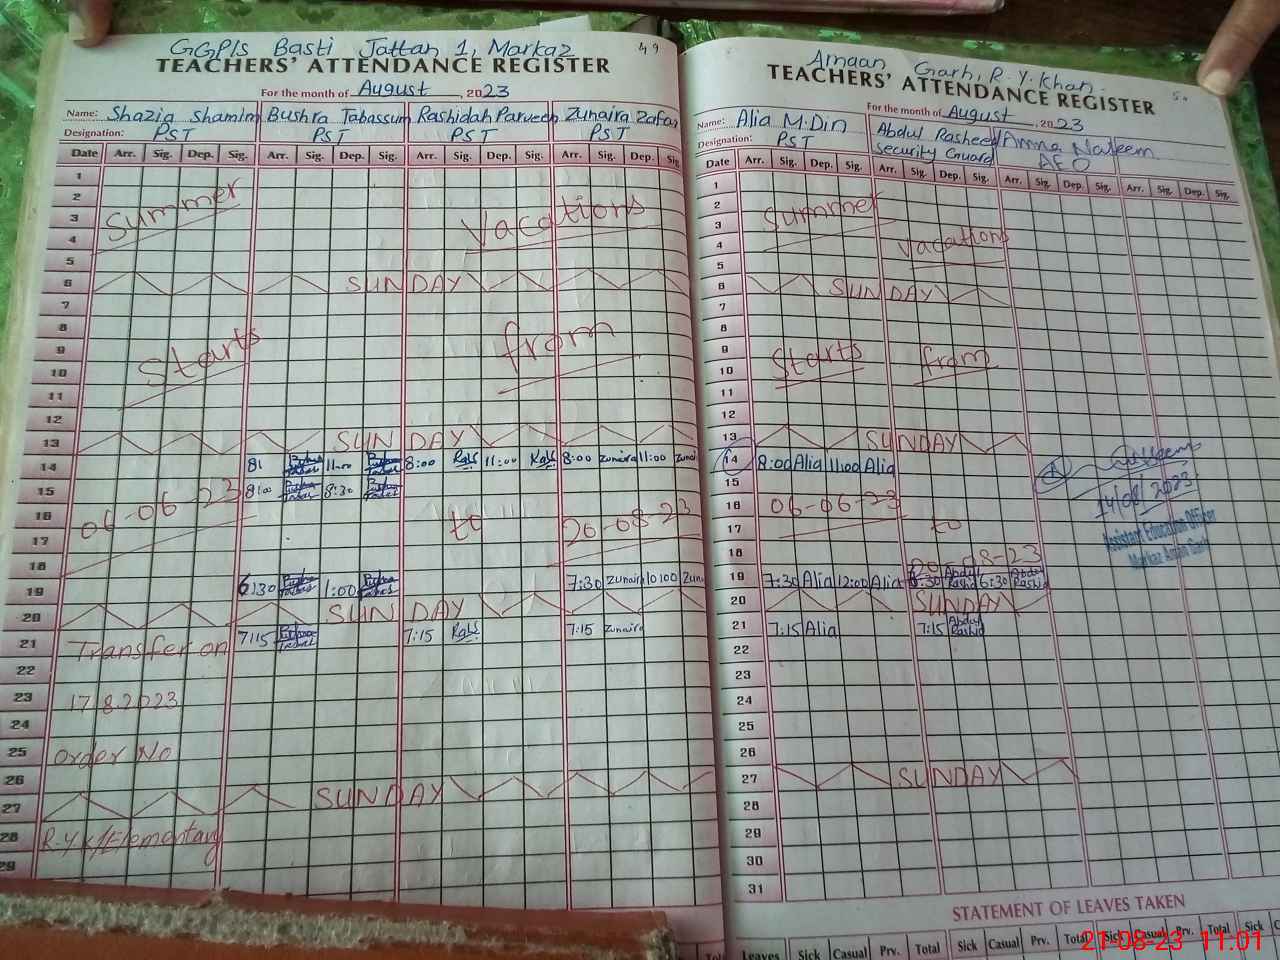 GGPIS Basti Jattan 1, Markaz 49
TEACHERS' ATTENDANCE REGISTER
For the month of August, 2023
Name: Shazia Shamim Bushra Tabassum Rashidah Parveen Zunaira Zafar
Designation: PST PST PST PST
Date Arr. Sig. Dep. Sig. Arr. Sig. Dep. Sig. Arr. Sig. Dep. Sig. Arr. Sig. Dep. Sig.
1
2
Summer Vacations
3
4
5
6 SUNDAY
7
8
Starts from
9
10
11
12
13 SUNDAY
14 81 11:00 8:00 11:00 8:00 Zunaira 11:00
15 8:00 8:30
06-06-23 to 20-08-23
16
17
18
19 6:30 1:00 7:30 Zunaira 10:00
20 SUNDAY
21 Transfer on 7:15 7:15 7:15 Zunaira
22
23 17.8.2023
24
25 order No
26
27 SUNDAY
28 R.Y.K/Elementary
29
Amaan Garh, R.Y.Khan. 50
TEACHERS' ATTENDANCE REGISTER
For the month of August, 2023
Name: Alia M.Din Abdul Rasheed Amna Naleem
Designation: PST Security Guard AEO
Date Arr. Sig. Dep. Sig. Arr. Sig. Dep. Sig. Arr. Sig. Dep. Sig. Arr. Sig. Dep. Sig.
1
2
3 Summer
4 Vacations
5
6 SUNDAY
7
8
9 Starts from
10
11
12
13 SUNDAY
14 8:00 Alia 11:00 Alia
15
14/08/2023
Assistant Education Officer
Markaz Aman Garh
16 06-06-23 to
17
18 20-08-23
19 7:30 Alia 12:00 Alia 6:30 Abdul Rashid 6:30 Abdul Rashid
20 SUNDAY
21 7:15 Alia 7:15 Abdul Rashid
22
23
24
25
26
27 SUNDAY
28
29
30
31
STATEMENT OF LEAVES TAKEN
Leaves Sick Casual Prv. Total Sick Casual Prv. Total Sick Casual Prv. Total Sick
21-08-23 11:01